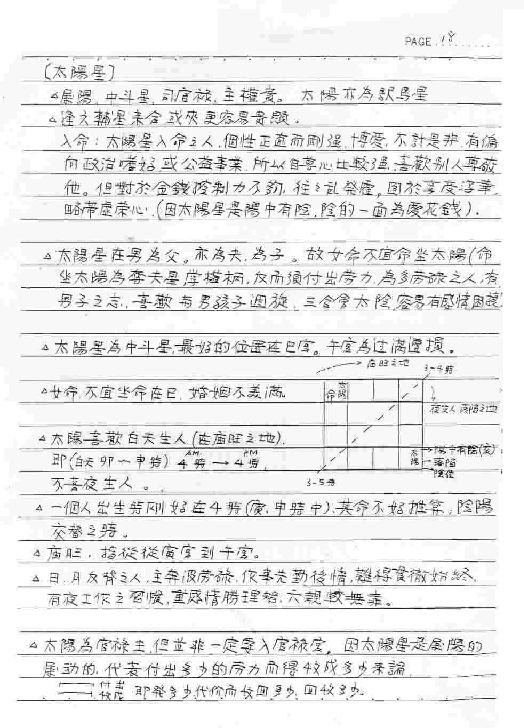 PAGE 18
〔太陽星〕
△屬陽、中斗星、司官祿、主權貴。太陽亦為馹馬星
△逢文輔星來會或夾更容易是顯。
入命：太陽星入命之人，個性正直而剛強，博愛，不計是非，有偏
向政治嗜好或公益事業，所以自尊心比較強，喜歡別人尊敬
他。但對於金錢控制力不夠，往往亂發産。因於享受浮華
略帶虛榮心，(因太陽星是陽中有陰，陰的一面為愛花錢)。
△太陽星在男為父。亦為夫，為子。故女命不宜命坐太陽(命
坐太陽為奪夫星掌權柄，反而須付出勞力，為多勞碌之人，有
男子之志，喜歡與男孩子週旋，三合會太陰，容易有感情困擾
△太陽星為中斗星，最好的位置在巳宮。午宮為過滿遭損。
廟旺之地
3-4時
△女命，不宜坐命在巳，婚姻不美滿。
命 太陽
夜生人落陷之地
△太陽喜歡白天生人(在廟旺之地)，
即(白天卯～申時) AM 4時→PM 4時，
太陽
陽中有陰(亥)
落陷
陰位
不喜夜生人。
3-5時
△一個人出生時剛好在4時(寅、申時中)，其命不好推算，陰陽
交替之時。
△廟旺，指從從寅宮到午宮。
△日、月反背之人，主奔波勞碌，作事先勤後惰，難得貫徹始終，
有夜工作之習慣，重感情勝理智，六親較無靠。
△太陽為官祿主，但並非一定要入官祿宮。因太陽星是屬陽的
是動的，代表付出多少的勞力而得收成多少來論，
付出 收成 即發多少代價而收回多少，回收多少。